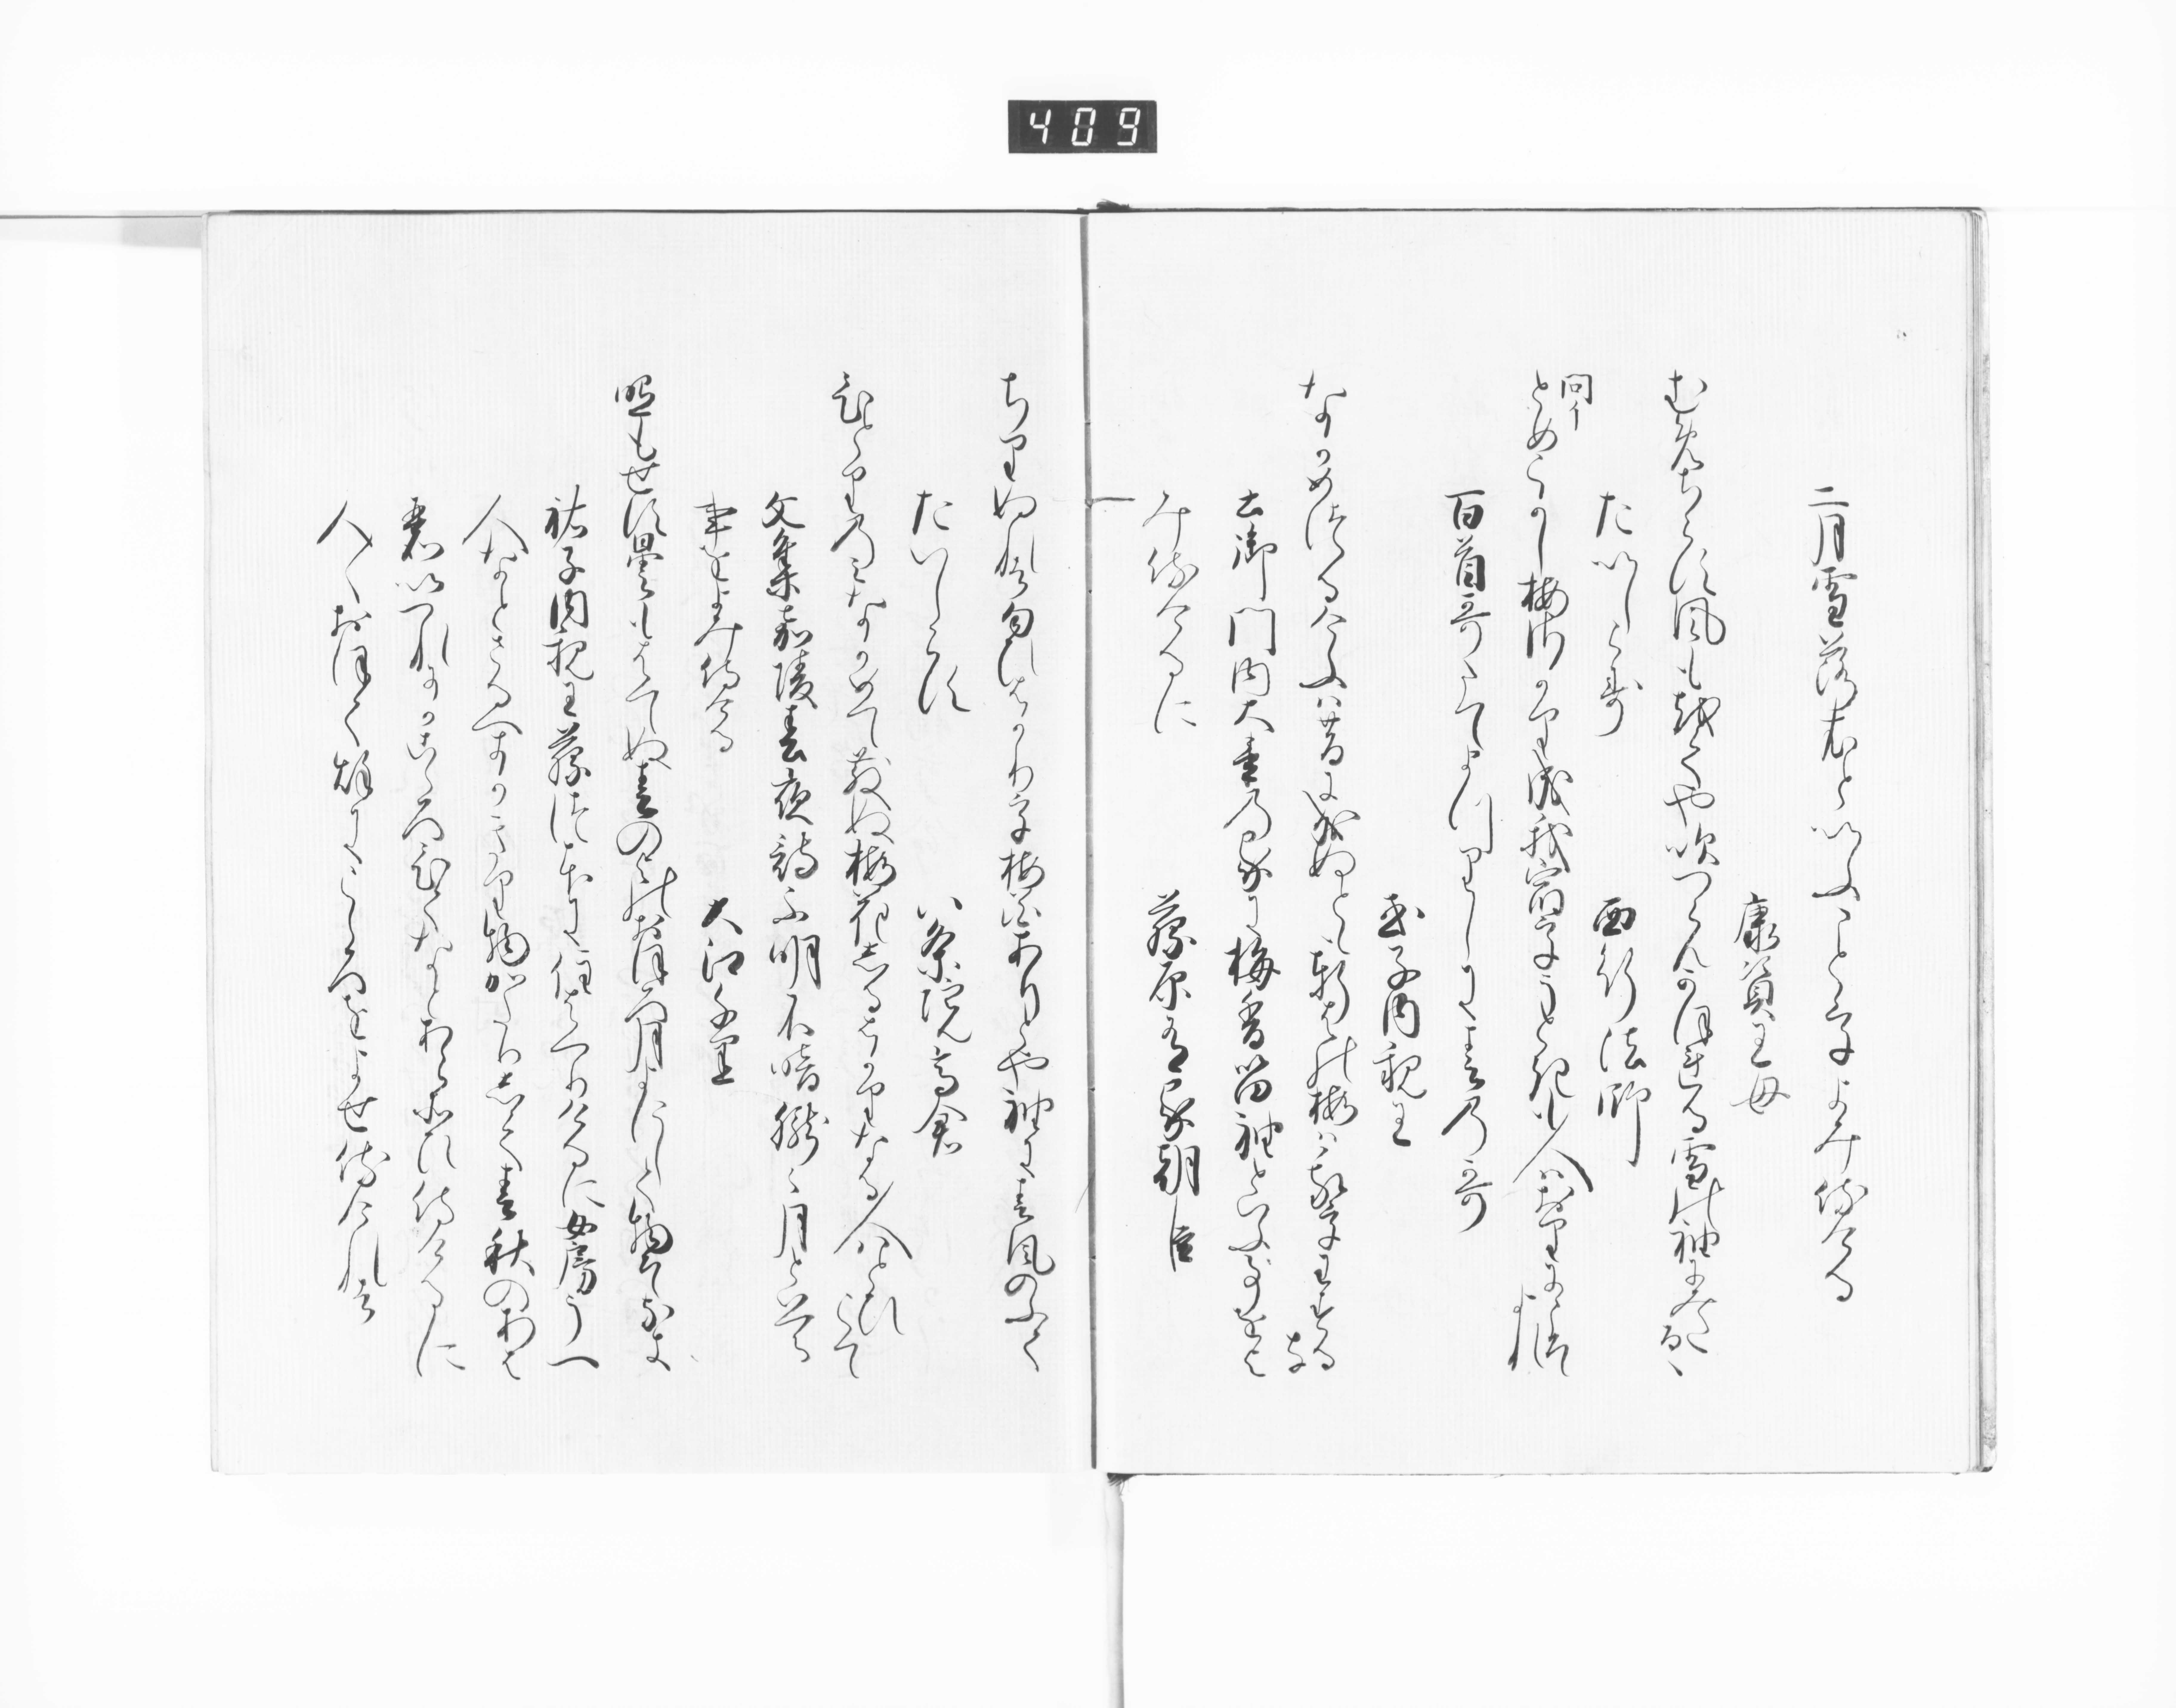 409
二月雪落衣といふことをよみ侍ける
康資王母
むめちらす風もこえてや吹つらんかほれる雪の袖にみたるゝ
たいしらす
西行法師
問イ
とめこかし梅さかりなる我宿をうときも人はおりにこそよれ
百首哥たてまつりしに春の哥
式子内親王
なかめつるけふは昔になりぬとも軒はの梅は我をわするな
土御門内大臣の家に梅香留袖といふ事をよ
み侍けるに
藤原有家朝臣
ちりぬれは匂はかりを梅花ありとや袖に春風のふく
たいしらす
八条院高倉
ひとりのみなかめて散ぬ梅花しるはかりなる人はとひこて
文集嘉陵春夜詩不明不暗朧々月といへる
事をよみ侍ける
大江千里
照もせす曇もはてぬ春のよのおほろ月よにしく物そなき
祐子内親王藤つほに住はへりけるに女房うへ
人なとさるへきかきり物かたりして春秋のあは
れいつれにか心ひくなとあらそひ侍けるに
人々おほく秋にこゝろをよせ侍けれは